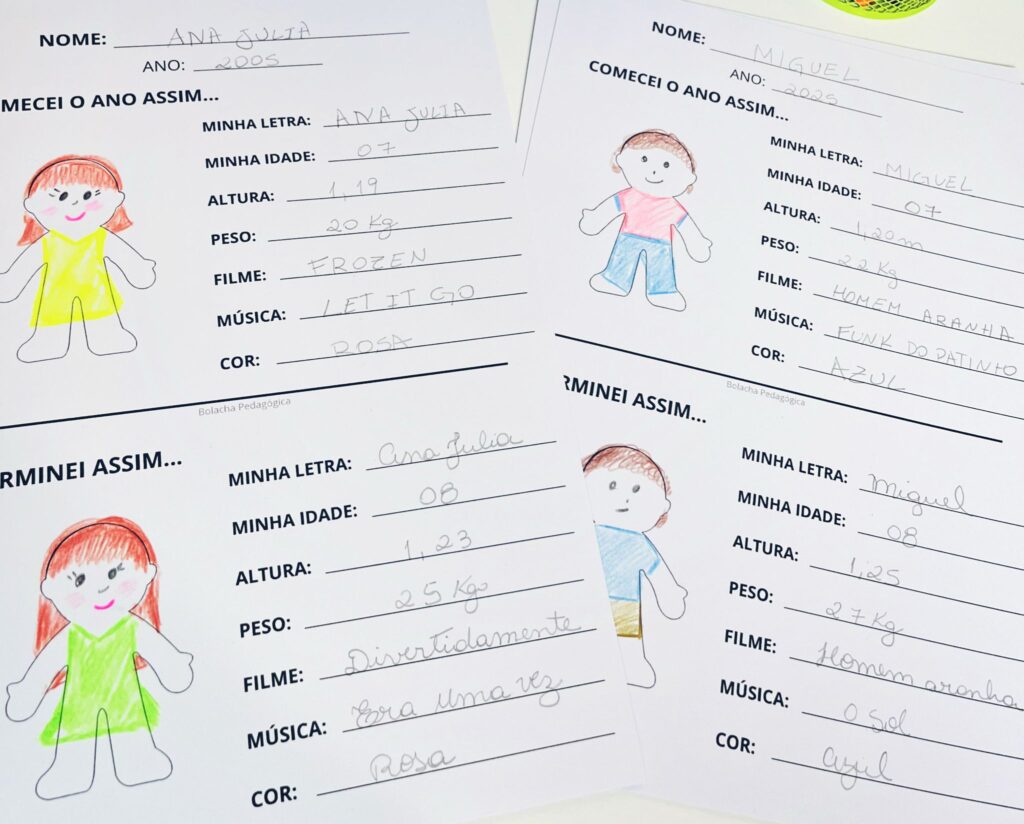 NOME: ANA JULIA
ANO: 2005
MECEI O ANO ASSIM...
MINHA LETRA: ANA JULIA
MINHA IDADE: 07
ALTURA: 1,19
PESO: 20 Kg
FILME: FROZEN
MÚSICA: LET IT GO
COR: ROSA
Bolacha Pedagógica
RMINEI ASSIM...
MINHA LETRA: Ana Julia
MINHA IDADE: 08
ALTURA: 1,23
PESO: 25 Kgo
FILME: Divertidamente
MÚSICA: Era uma vez
COR: Rosa
NOME: MIGUEL
ANO: 2025
COMECEI O ANO ASSIM...
MINHA LETRA: MIGUEL
MINHA IDADE: 07
ALTURA: 1,20m
PESO: 22 Kg
FILME: HOMEM ARANHA
MÚSICA: FUNK DO PATINHO
COR: AZUL
Bolacha Pedagógica
RMINEI ASSIM...
MINHA LETRA: Miguel
MINHA IDADE: 08
ALTURA: 1,25
PESO: 27 Kg
FILME: Homem aranha
MÚSICA: O Sol
COR: azul